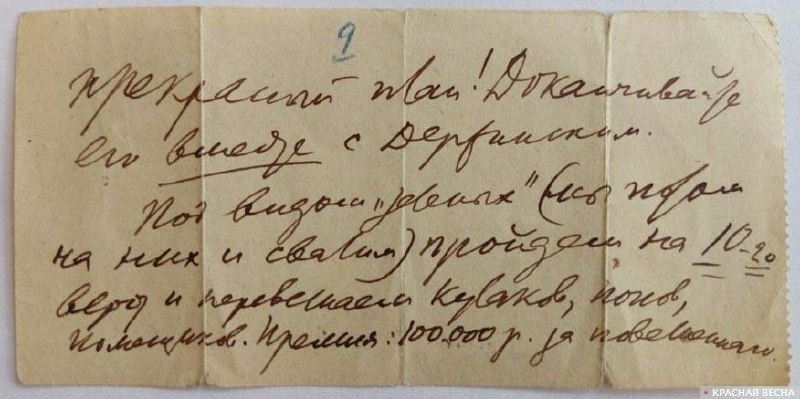 9
прекрасный план! Доканчивайте
его вместе с Дзержинским.
Под видом „зеленых" (мы потом
на них и свалим) пройдем на 10-20
верст и перевешаем кулаков, попов,
помещиков. Премия: 100.000 р. за повешенного.
КРАСНАЯ ВЕСНА